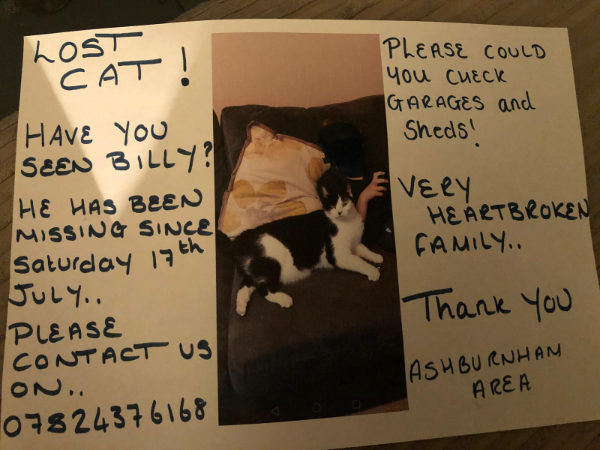 LOST
CAT!
HAVE YOU
SEEN BILLY?
HE HAS BEEN
MISSING SINCE
Saturday 17th
JULY..
PLEASE
CONTACT US
ON..
07824376168
PLEASE COULD
YOU CHECK
GARAGES and
Sheds!
VERY
HEARTBROKEN
FAMILY..
Thank You
ASHBURNHAM
AREA